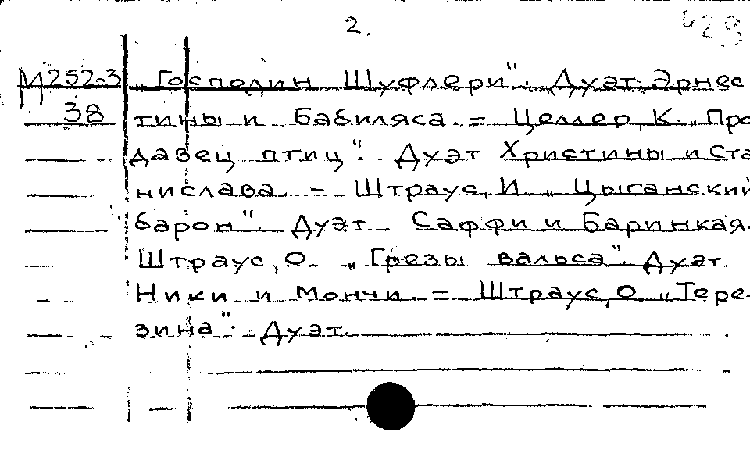 2.
М252-3 „Господин Шуфлери". Дуэт Эрнес
38 тины и Бабиляса. = Целлер, К. „Про
давец птиц". Дуэт Христины и Ста
нислава. - Штраус, И. „Цыганский
барон". Дуэт Саффи и Баринкая.
Штраус, О. „Грезы вальса". Дуэт
Ники и Мончи. = Штраус, О. „Тере
зина". Дуэт.